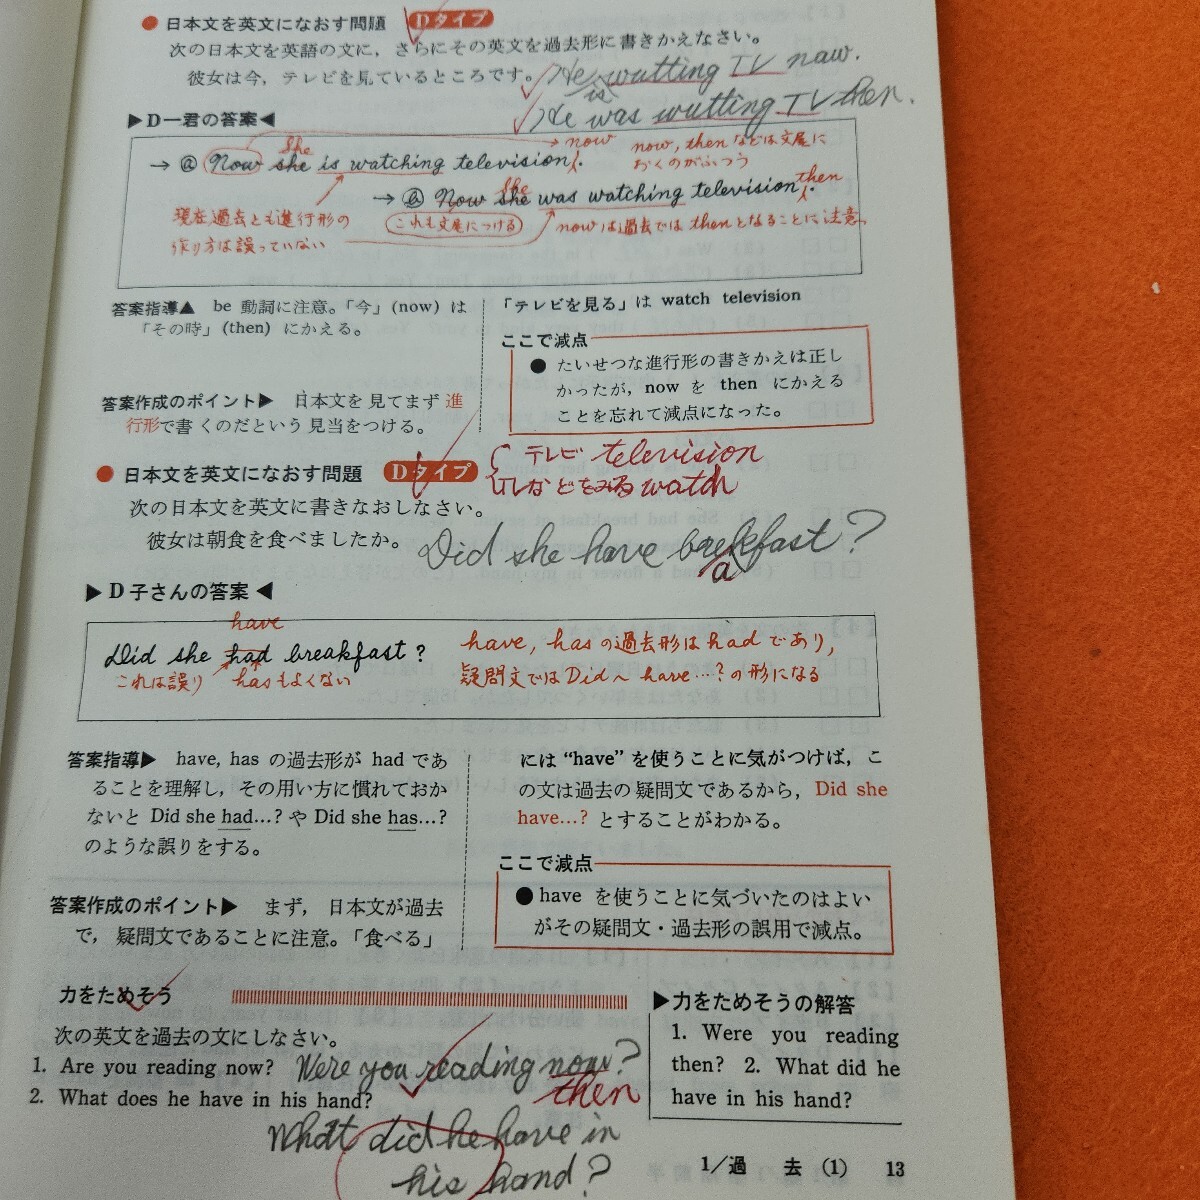 ● 日本文を英文になおす問題 Dタイプ
次の日本文を英語の文に，さらにその英文を過去形に書きかえなさい。
彼女は今，テレビを見ているところです。
He is wutting TV naw.
He was wutting TV then.
▶D一君の答案◀
→ⓐ Now she is watching television.
She
now
now, thenなどは文尾に
おくのがふつう
→ⓑ Now she was watching television.
she
then
現在,過去とも進行形の
作り方は誤っていない
これも文尾につける
nowは過去ではthenとなることに注意
答案指導▲ be 動詞に注意。「今」(now) は
「その時」(then) にかえる。
答案作成のポイント▶ 日本文を見てまず進
行形で書くのだという見当をつける。
「テレビを見る」は watch television
ここで減点
● たいせつな進行形の書きかえは正し
かったが，now を then にかえる
ことを忘れて減点になった。
● 日本文を英文になおす問題 Dタイプ
テレビ television
テレビなどをみる watch
次の日本文を英文に書きなおしなさい。
彼女は朝食を食べましたか。
Did she have brekfast?
a
▶D子さんの答案◀
have
Did she had breakfast?
これは誤り
hasもよくない
have, hasの過去形はhadであり,
疑問文ではDid～have…?の形になる
答案指導▶ have, has の過去形が had であ
ることを理解し，その用い方に慣れておか
ないと Did she had…? や Did she has…?
のような誤りをする。
答案作成のポイント▶ まず，日本文が過去
で，疑問文であることに注意。「食べる」
には“have”を使うことに気がつけば，こ
の文は過去の疑問文であるから，Did she
have…? とすることがわかる。
ここで減点
● have を使うことに気づいたのはよい
がその疑問文・過去形の誤用で減点。
力をためそう
次の英文を過去の文にしなさい。
1. Are you reading now?
Were you reading now?
then
2. What does he have in his hand?
What did he have in
his hand?
▶力をためそうの解答
1. Were you reading
then? 2. What did he
have in his hand?
1／過 去（1） 13